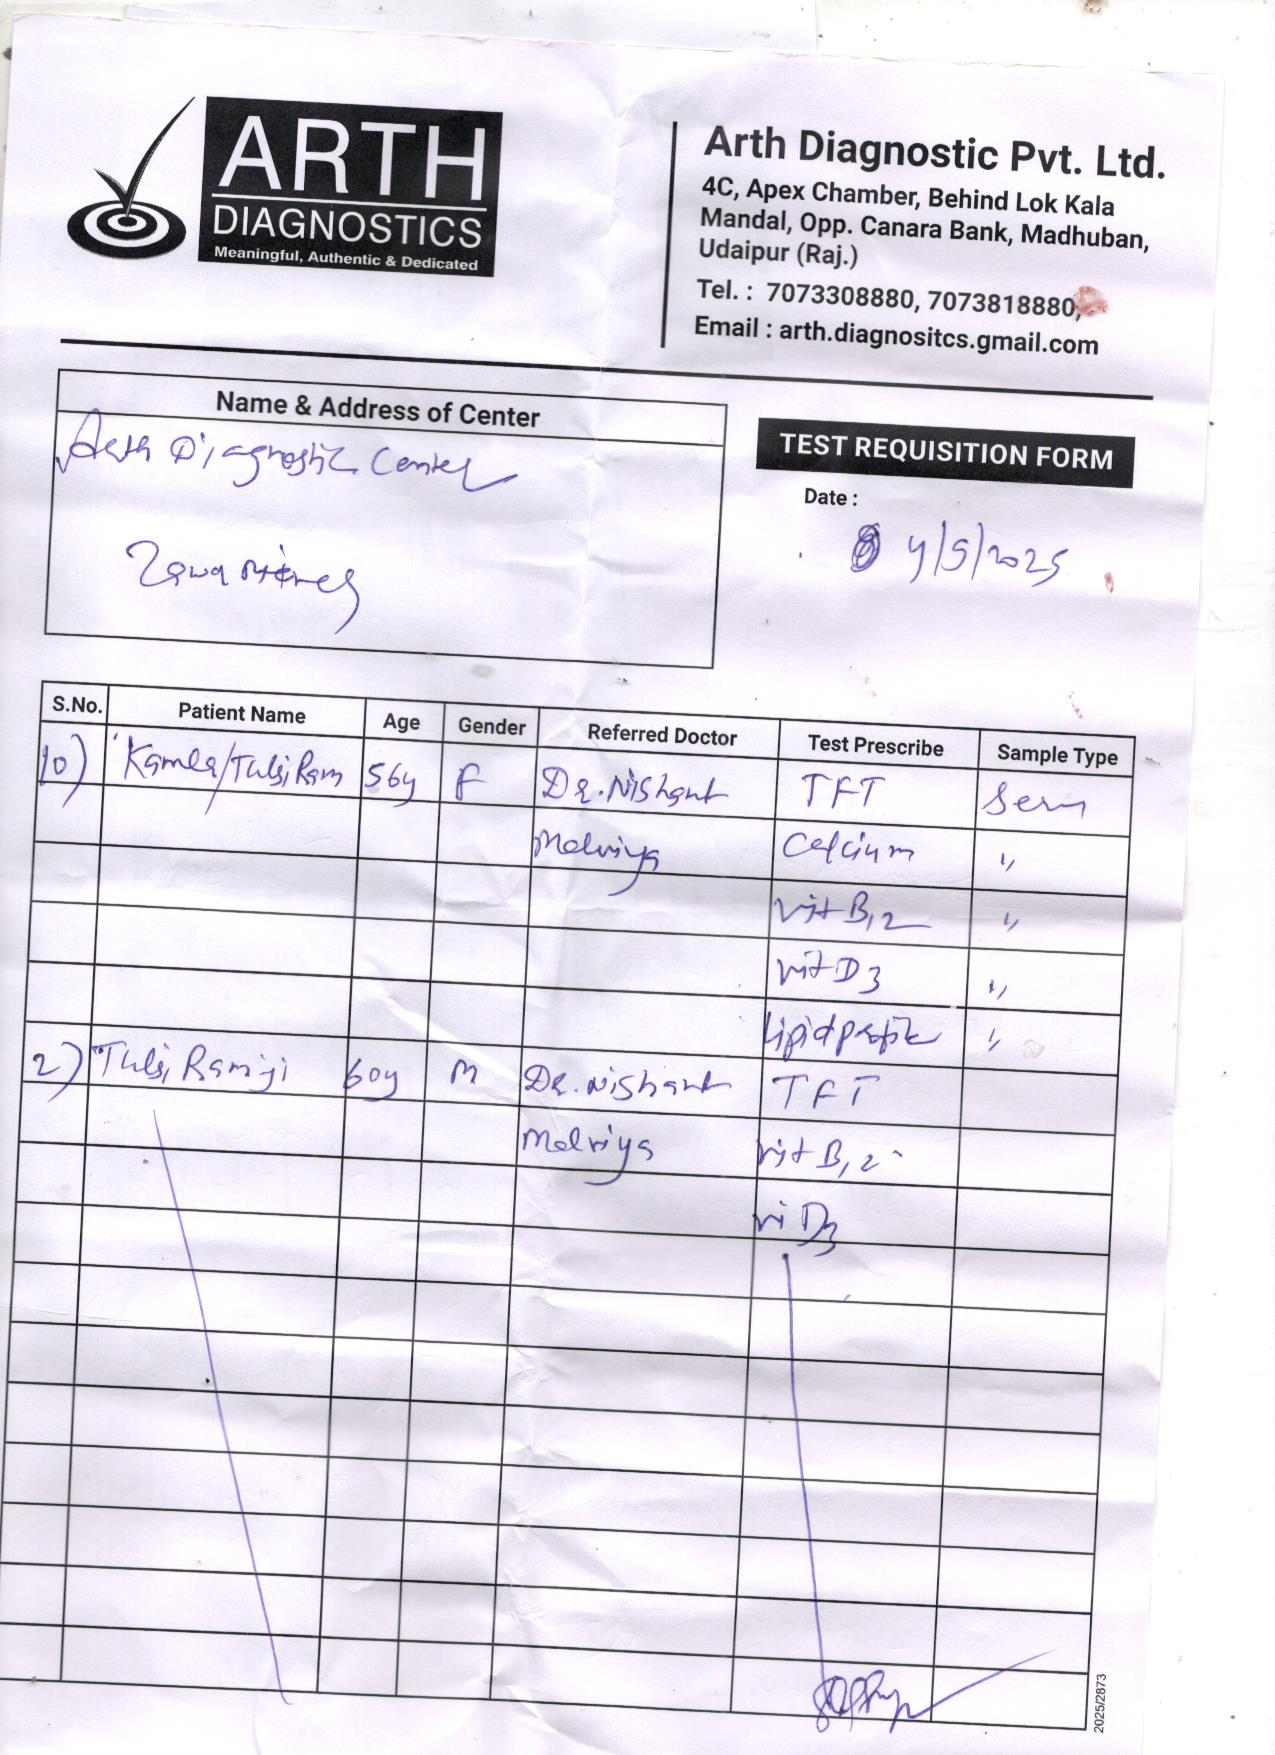 ARTH
DIAGNOSTICS
Meaningful, Authentic & Dedicated
Arth Diagnostic Pvt. Ltd.
4C, Apex Chamber, Behind Lok Kala
Mandal, Opp. Canara Bank, Madhuban,
Udaipur (Raj.)
Tel. : 7073308880, 7073818880,
Email : arth.diagnositcs.gmail.com
Name & Address of Center
Arth Diagnostic Center
Zawar Mines
TEST REQUISITION FORM
Date :
4/5/2025
S.No. Patient Name Age Gender Referred Doctor Test Prescribe Sample Type
10) Kamla/Tulsi Ram 56y F Dr. Nishant TFT Serum
Malviya Calcium "
Vit B12 "
Vit D3 "
Lipid profile "
2) Tulsi Ramji 60y M Dr. Nishant TFT
Malviya Vit B12
Vi D3
2025/2873